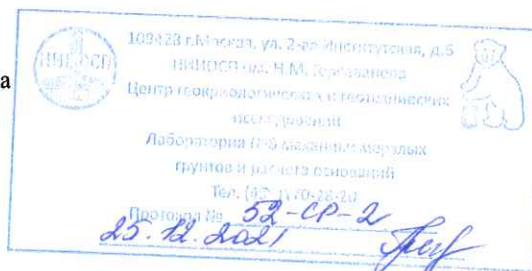 а
109428 г.Москва, ул. 2-ая Институтская, д.6
НИИОСП им. Н.М. Герсеванова
НИИОСП
Центр геокриологических и геотехнических
исследований
Лаборатория №6 механики мерзлых
грунтов и расчета оснований
Тел. 170-28-20
Протокол № 52-СР-2
25.12.2021